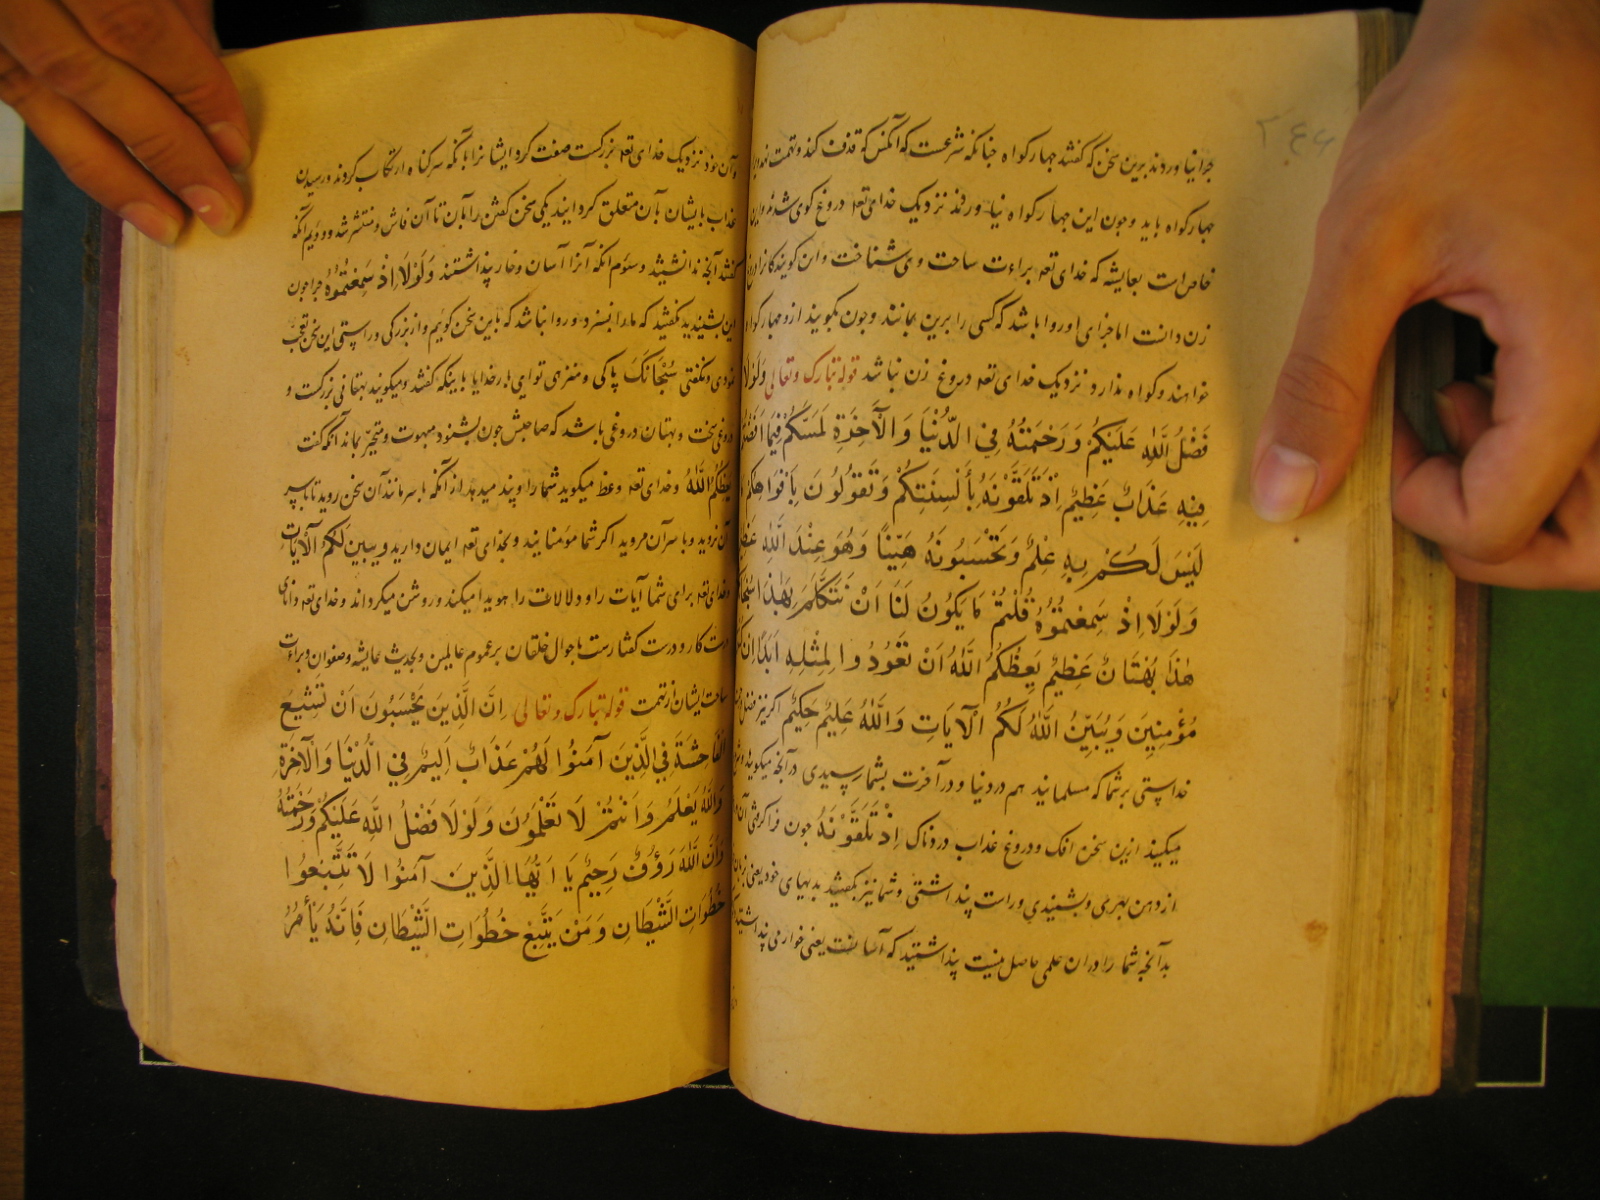 چرا نیاوردند برین سخن که گفتند چهار کواه چنانکه شرعست که آنکس که قذف کند و تهمت نهد
چهار کواه باید و چون این چهار کواه نیاوردند نزدیک خدای تعه دروغ کوی شدند
خاص است بعایشه که خدای تعه براءت ساحت وی شناخت و این کویندکانرا
زن دانست اما جزای او روا باشد که کسی را برین بمانند و چون بکویند ازو چهار کواه
خواهند و کواه ندارد نزدیک خدای تعه دروغ زن نباشد قوله تبارک وتعالی وَلَوْلَا
فَضْلُ اللّٰهِ عَلَيْكُمْ وَرَحْمَتُهُ فِي الدُّنْيَا وَالْآخِرَةِ لَمَسَّكُمْ فِيمَا اَفَضْتُمْ
فِيهِ عَذَابٌ عَظِيمٌ اِذْ تَلَقَّوْنَهُ بِأَلْسِنَتِكُمْ وَتَقُولُونَ بِأَفْوَاهِكُمْ
لَيْسَ لَكُمْ بِهِ عِلْمٌ وَتَحْسَبُونَهُ هَيِّنًا وَهُوَ عِنْدَ اللّٰهِ عَظِيمٌ
وَلَوْلَا اِذْ سَمِعْتُمُوْهُ قُلْتُمْ مَا يَكُونُ لَنَا اَنْ نَتَكَلَّمَ بِهٰذَا سُبْحَانَكَ
هٰذَا بُهْتَانٌ عَظِيمٌ يَعِظُكُمُ اللّٰهُ اَنْ تَعُودُوا لِمِثْلِهِ اَبَدًا اِنْ كُنْتُمْ
مُؤْمِنِينَ وَيُبَيِّنُ اللّٰهُ لَكُمُ الْآيَاتِ وَاللّٰهُ عَلِيمٌ حَكِيمٌ اکر نیز فضل
خداستی بر شما که مسلمانید هم در دنیا و در آخرت بشما رسیدی در آنچه میکویید
میکنید ازین سخن افک و دروغ عذاب دردناک اِذْ تَلَقَّوْنَهُ چون فرا کرفتی آن
از دهن بهری و بشنیدی و راست پنداشتی و شما نیز بکفتید بدیهای خود یعنی بزبان
بدآنچه شما را در آن علمی حاصل نیست پنداشتید که آسانست یعنی خوار می پنداشتید
و آن خود نزدیک خدای تعه بزرکست صفت کرد ایشانرا بآنکه سه کناه ارتکاب کردند و رسیدن
عذاب بایشان بآن متعلق کردانید یکی سخن کفتن را بآن تا آن فاش و منتشر شد و دویم آنکه
گفتند آنچه ندانستند و سوم آنکه آنرا آسان و خوار پنداشتند وَلَوْلَا اِذْ سَمِعْتُمُوْهُ چرا چون
این بشنیدید نکفتید که ما را نسزد و روا نباشد که باین سخن کوییم و از بزرکی و راستی این سخن تعجب
نمودی و نکفتی سُبْحَانَكَ پاکی و منزهی تو ای بار خدایا باینکه کفتند و میکویند بهتانی بزرکست و
دروغی سخت و بهتان دروغی باشد که صاحبش چون بشنود مبهوت و متحیر بماند آنکه کفت
يَعِظُكُمُ اللّٰهُ و خدای تعه وعظ میکوید شما را و پند میدهد از آنکه با سر مانند آن سخن روید تا باسر
آن نروید و با سر آن مروید اکر شما مؤمنانید و بخدای تعه ایمان دارید وَيُبَيِّنُ لَكُمُ الْآيَاتِ
و خدای تعه برای شما آیات را و دلالات را هویدا میکند و روشن میکرداند و خدای تعه دانای
راست کار و درست کفتارست باحوال خلقان بر عموم عالمیان و بحدیث عایشه و صفوان و براءت
ساحت ایشان از تهمت قوله تبارک وتعالی اِنَّ الَّذِينَ يُحِبُّونَ اَنْ تَشِيعَ
الْفَاحِشَةُ فِي الَّذِينَ آمَنُوا لَهُمْ عَذَابٌ اَلِيمٌ فِي الدُّنْيَا وَالْآخِرَةِ
وَاللّٰهُ يَعْلَمُ وَاَنْتُمْ لَا تَعْلَمُونَ وَلَوْلَا فَضْلُ اللّٰهِ عَلَيْكُمْ وَرَحْمَتُهُ
وَاَنَّ اللّٰهَ رَؤُفٌ رَحِيمٌ يَا اَيُّهَا الَّذِينَ آمَنُوا لَا تَتَّبِعُوا
خُطُوَاتِ الشَّيْطَانِ وَمَنْ يَتَّبِعْ خُطُوَاتِ الشَّيْطَانِ فَاِنَّهُ يَأْمُرُ